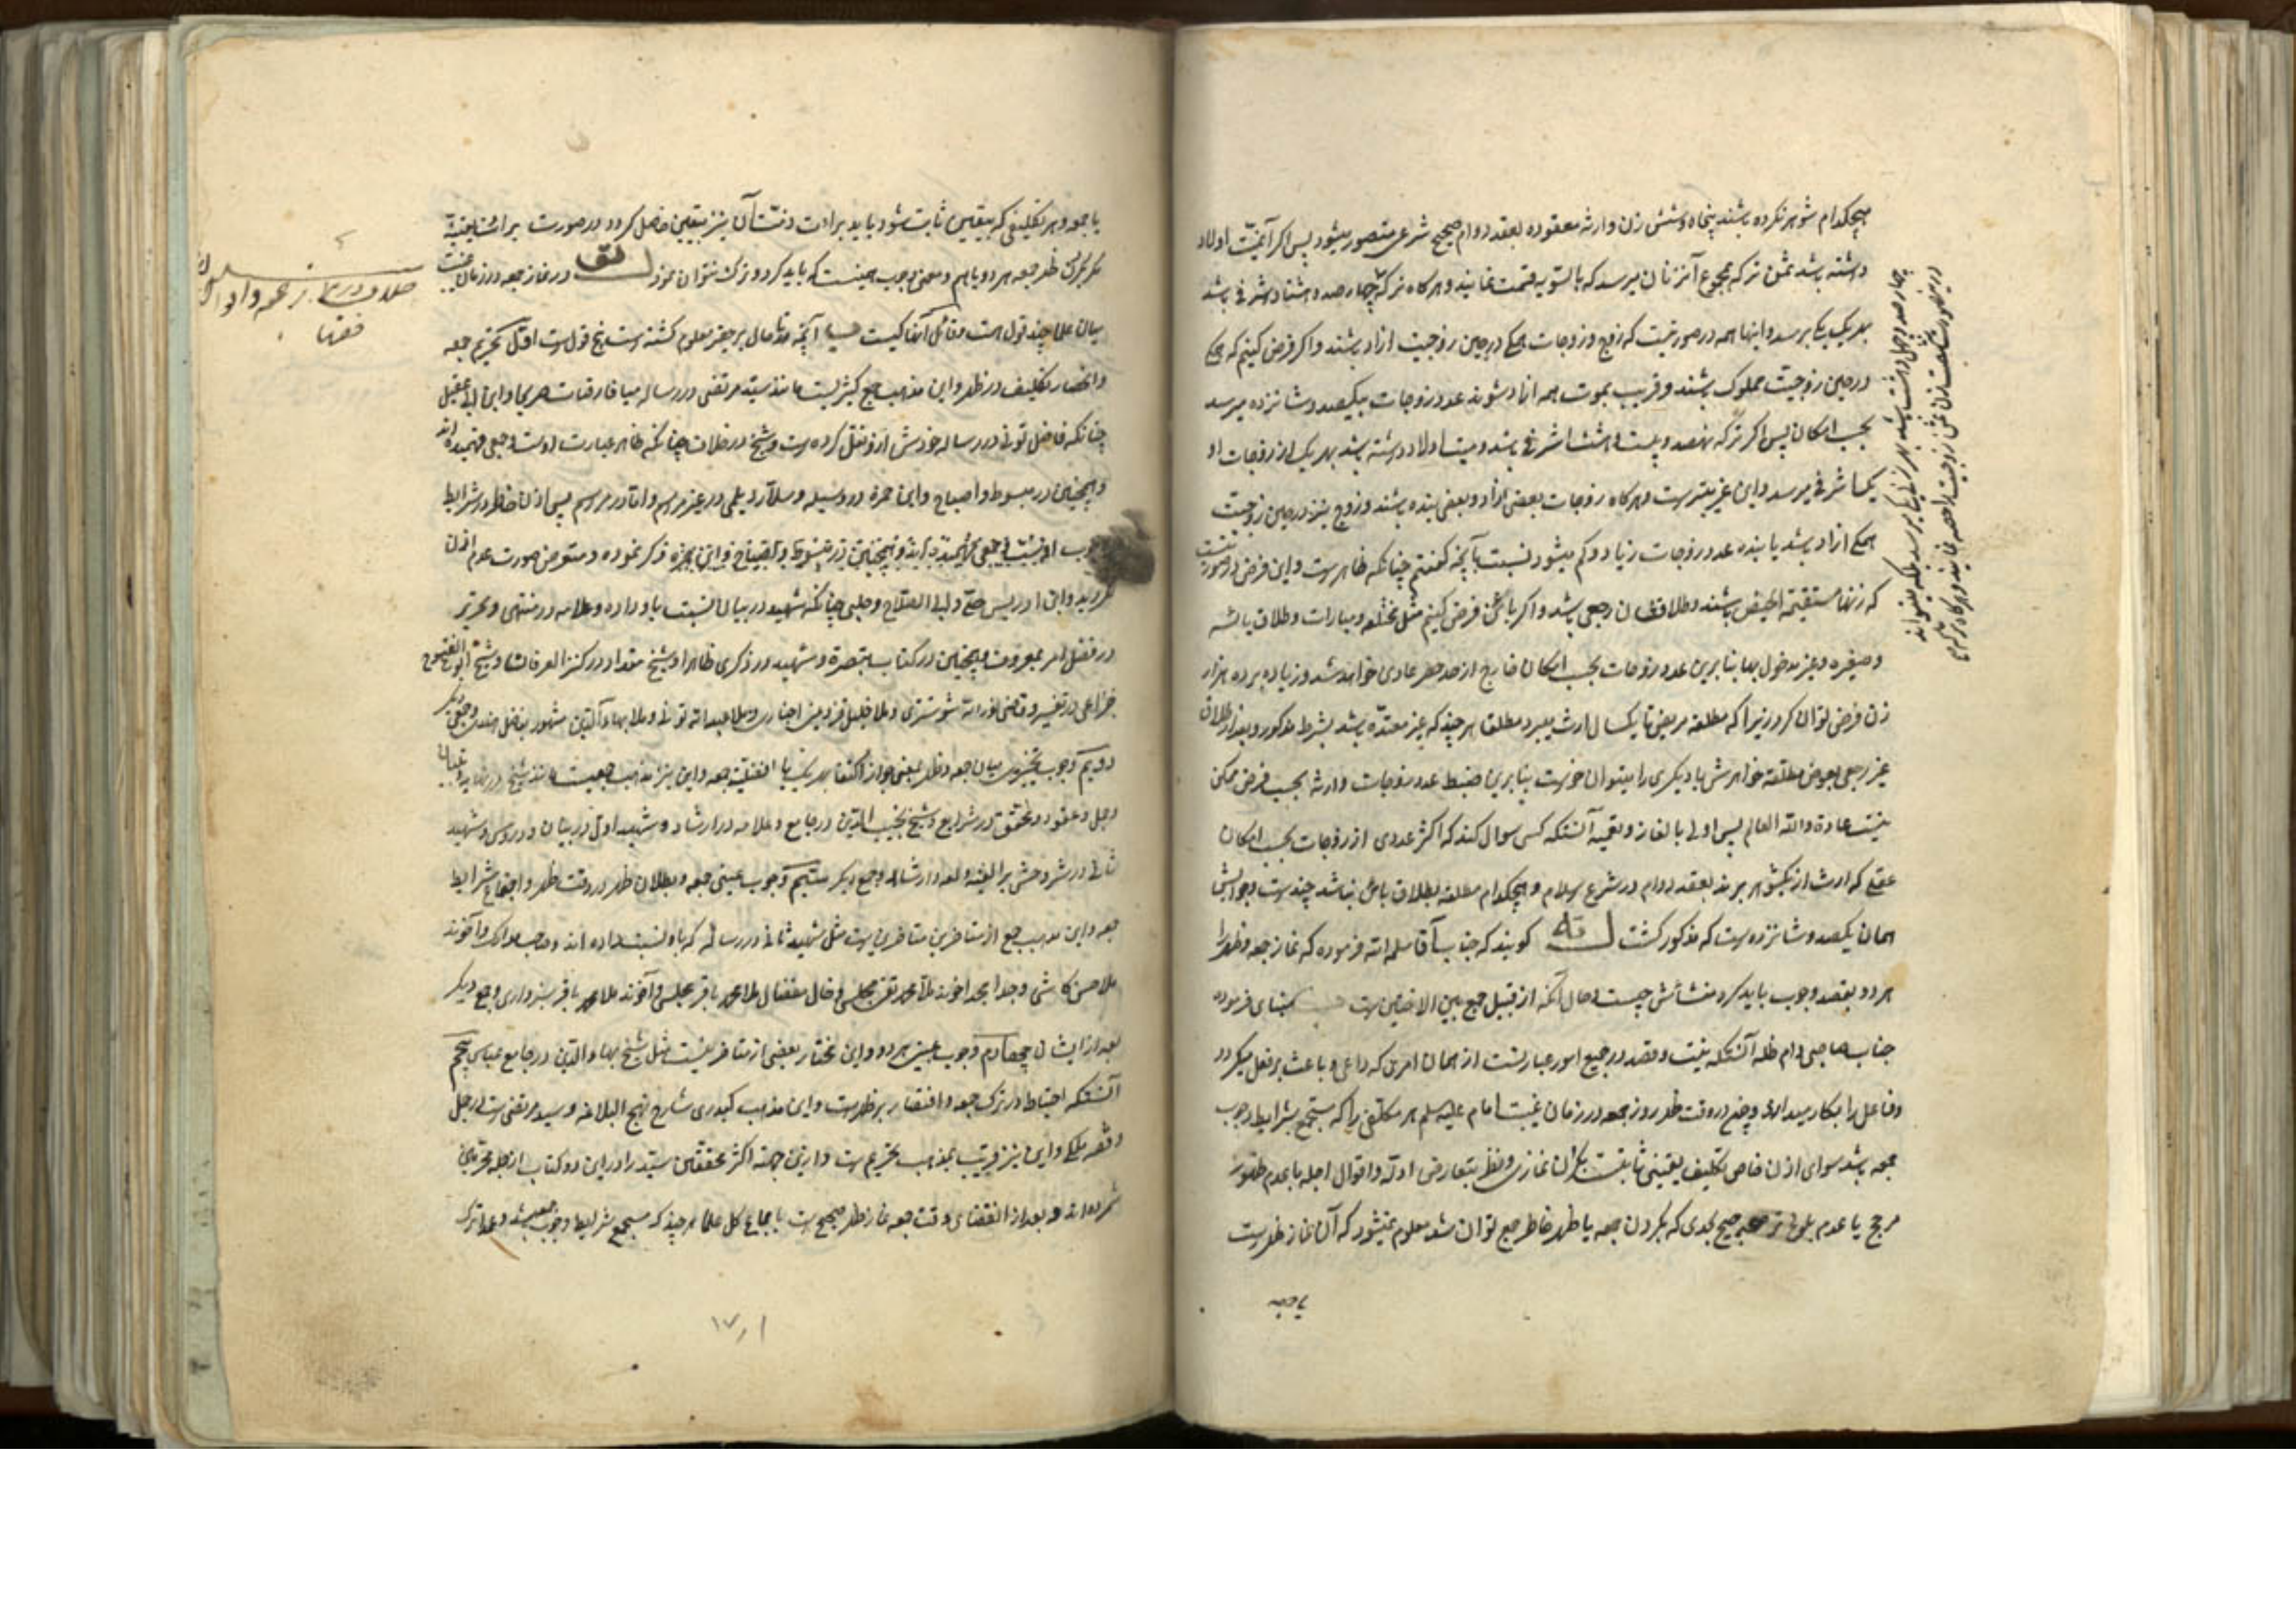 هیچکدام شوهر نکرده باشند پنجاه و شش زن وارثه معقوده بعقد دوام صحیح شرعی متصور میشود پس اگر آن میت اولاد
داشته باشد ثمن ترکه بمجموع آنزنان میرسد که بالسویه قسمت نمایند و هرگاه ترکه چهارصد و هشتاد اشرفی باشد
بهر یک یک برسد و اینها همه در صورتیست که زوج و زوجات همگی در حین زوجیت ازاد باشند و اگر فرض کنیم که همگی
در حین زوجیت مملوک باشند و قریب بموت همه ازاد شوند عدد زوجات بیکصد و شانزده میرسد
بحسب امکان پس اگر ترکه نهصد و بیست و هشت اشرفی باشد و میت اولاد داشته باشد بهر یک از زوجات او
یک اشرفی میرسد و این غریبتر است و هرگاه زوجات بعضی ازاد و بعضی بنده باشند و زوج نیز در حین زوجیت
همگی ازاد باشد یا بنده عدد زوجات زیاد و کم میشود نسبت بآنچه گفتیم چنانکه ظاهر است و این فرض در صورتیست
که زنها مستقیمة الحیض باشند و طلاقشان رجعی باشد و اگر باین فرض کنیم مثل مختلعه و مبارات و طلاق یائسه
و صغیره و غیر مدخول بها بنابرین عدد زوجات بحسب امکان خارج از حد حصر عادی خواهد شد و زیاده بر ده هزار
زن فرض توان کرد زیرا که مطلقه مریض تا یکسال ارث میبرد مطلقا هر چند که غیر معتده باشد بشرط مذکور و بعد از طلاق
غیر رجعی بعوض مطلقه خواهرش یا دیگری را میتوان خواست بنابرین ضبط عدد زوجات وارثه بحسب فرض ممکن
نیست عادة والله العالم پس اولی بالغاز و تعمیه آنستکه کسی سوال کند که اکثر عددی از زوجات بحسب امکان
عقلی که ارث از یکشوهر برند بعقد دوام در شرع اسلام و هیچکدام مطلقه بطلاق باین نباشد چند است و جوابش
همان یکصد و شانزده است که مذکور گشت گویند که جناب آقا سلمه الله فرموده که نماز جمعه و ظهر را
هر دو بقصد وجوب باید کرد منشأش چیست و حال آنکه از قبیل جمع بین الاختین است فرموده
جناب صاحبی دام ظله آنستکه نیت و قصد در جمیع امور عبارتست از همان امری که داعی و باعث بر فعل میگردد
و فاعل را بکار میدارد و چنین در وقت ظهر روز جمعه در زمان غیبت امام علیه السلم هر مکلفی را که مستجمع شرایط وجوب
جمعه باشد سوای اذن خاص تکلیف یقینی ثابتست بکردن نمازی و نظر بتعارض ادله و اقوال اجله با عدم ظهور
مرجح یا عدم بلوغ ترجیح بحدی که بکردن جمعه یا ظهر خاطر جمع توان شد معلوم نمیشود که آن نماز ظهر است
یا جمعه
یا جمعه و هر تکلیفی که بیقین ثابت شود باید برائت ذمت از آن نیز بیقین حاصل کردد و در صورت برائت یقینیه
مگر بکردن ظهر و جمعه هر دو با هم و معنی وجوب همینست که باید کرد و ترک نتوان نمود در نماز جمعه در زمان غیبت
میان علما چند قول است و قائل آنها کیست آنچه تا حال بر حقیر معلوم گشته است پنج قول است اول تحریم جمعه
و انحصار تکلیف در ظهر و این مذهب جمع کثیریست مانند سید مرتضی در رساله میافارقیات صریحا و ابن ابی عقیل
چنانکه فاضل تونی در رساله خودش از او نقل کرده است و شیخ در خلاف چنانکه ظاهر عبارت اوست و جمعی فهمیده اند
و همچنین در مبسوط و اصباح و ابن حمزه در وسیله و سلار دیلمی در غیر مراسم و اما در مراسم پس اذن حاضر در شرایط
گردید و ابن ادریس حلی و ابی الصلاح و حلبی چنانکه شهید در بیان نسبت باو داده و علامه در منتهی و تحریر
در فصل امر بمعروف و همچنین در کتاب تبصره و شهید در ذکری ظاهرا و شیخ مقداد در کنز العرفان و شیخ ابو الفتوح
خزاعی در تفسیر و قاضی نور الله شوشتری و ملا خلیل قزوینی اخباری و ملا عبدالله تونی و ملا بهاء الدین مشهور بفاضل هندی و جمعی دیگر
دویم وجوب تخییری میان جمعه و ظهر بمعنی جواز اکتفا بهر یک با افضلیت جمعه و این نیز مذهب جمعیست مانند شیخ در نهایه
و جمل و عقود و محقق در شرایع و شیخ نجیب الدین در جامع و علامه در ارشاد و شهید اول در بیان و دروس و شهید
ثانی در شرحش بر الفیه و لمعه و ارشاد و جمع دیگر سیم وجوب عینی جمعه و بطلان ظهر در وقت ظهر و اجتماع شرایط
جمعه و این مذهب جمع از متاخرین متاخرین است مثل شهید ثانی در رساله که باو نسبت داده اند و صاحب مدارک و آخوند
ملا محسن کاشی و جد امجد اخوند ملا محمد تقی مجلسی و خال مفضال ملا محمد باقر مجلسی و آخوند ملا محمد باقر سبزواری و جمع دیگر
بعد از ایشان چهارم وجوب عینی هر دو و این مختار بعضی از متاخرینست مثل شیخ بهاء الدین در جامع عباسی پنجم
آنستکه احتیاط در ترک جمعه و اقتصار بر ظهر است و این مذهب کیدری شارح نهج البلاغه و سید مرتضی است در جمل
و فقه ملکی و این نیز قریب بمذهب تحریم است و ازین جهة اکثر محققین سید را در این دو کتاب از جمله محرمین
شمرده اند و بعد از انقضای وقت جمعه نماز ظهر صحیح است باجماع کل علما هر چند که مستجمع شرایط وجوب جمعه باشد و عمدا ترک
فقها